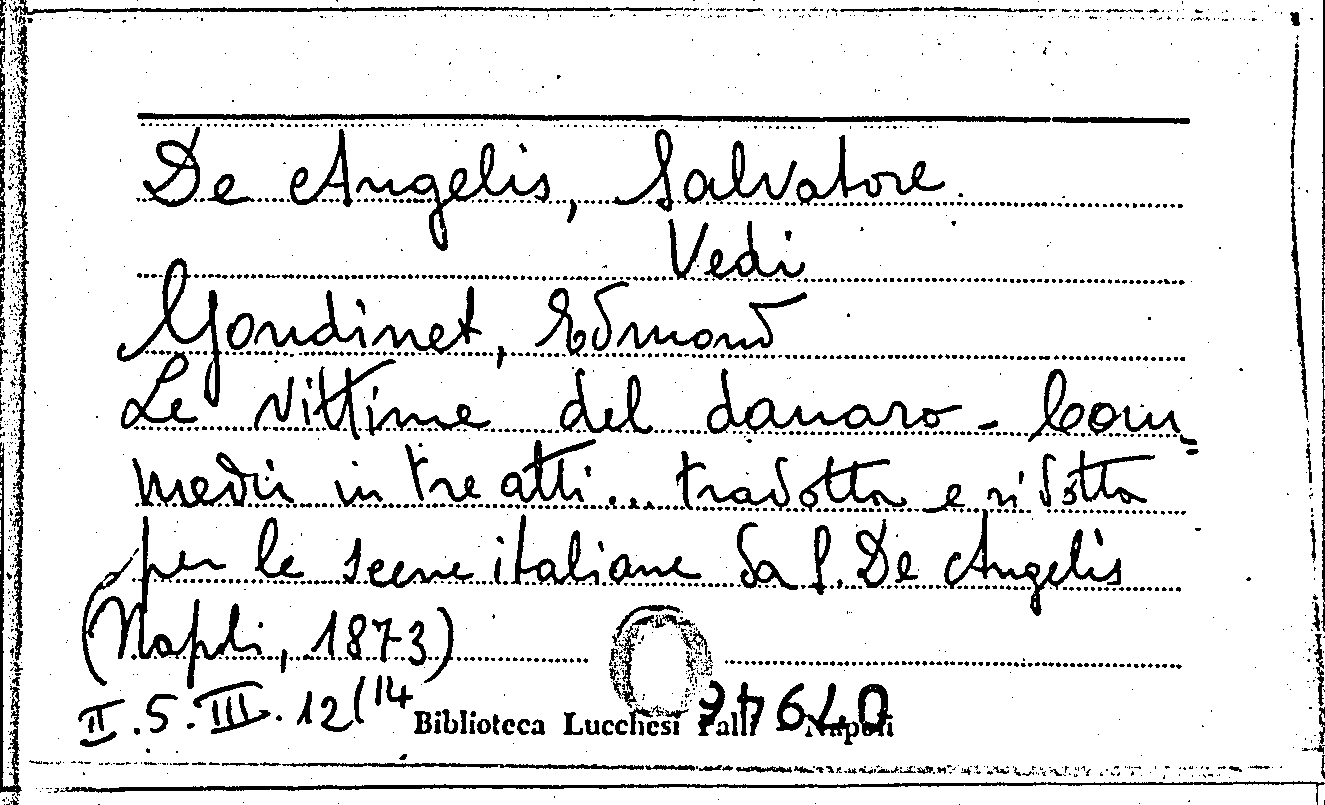 De Angelis, Salvatore.
Vedi
Gondinet, Edmond
Le vittime del danaro - Com=
media in tre atti... tradotta e ridotta
per le scene italiane da S. De Angelis
(Napoli, 1873)
II.5.III.12(14
Biblioteca Lucchesi Palli - Napoli